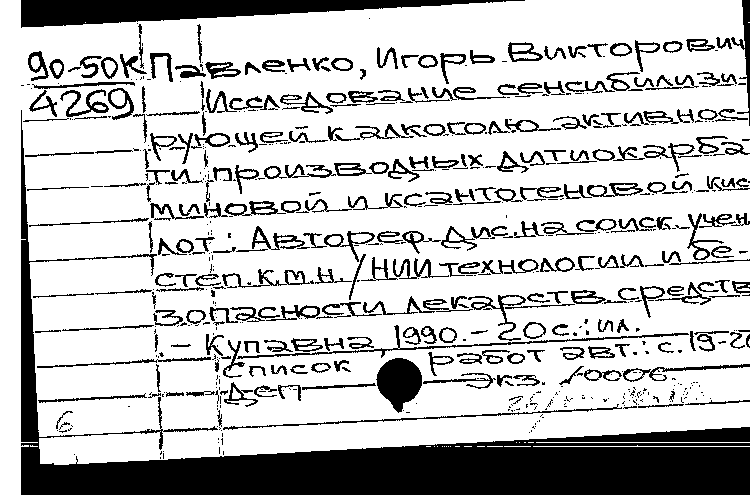 90-50к Павленко, Игорь Викторович
4269 Исследование сенсибилизи-
рующей к алкоголю активнос-
ти производных дитиокарба-
миновой и ксантогеновой кис-
лот : Автореф. дис. на соиск. учен.
степ. к.м.н. / НИИ технологии и бе-
зопасности лекарств. средств
. – Купавна, 1990. – 20 с. : ил.
Список работ авт.: с. 19-20
Деп Экз. /0006.
6